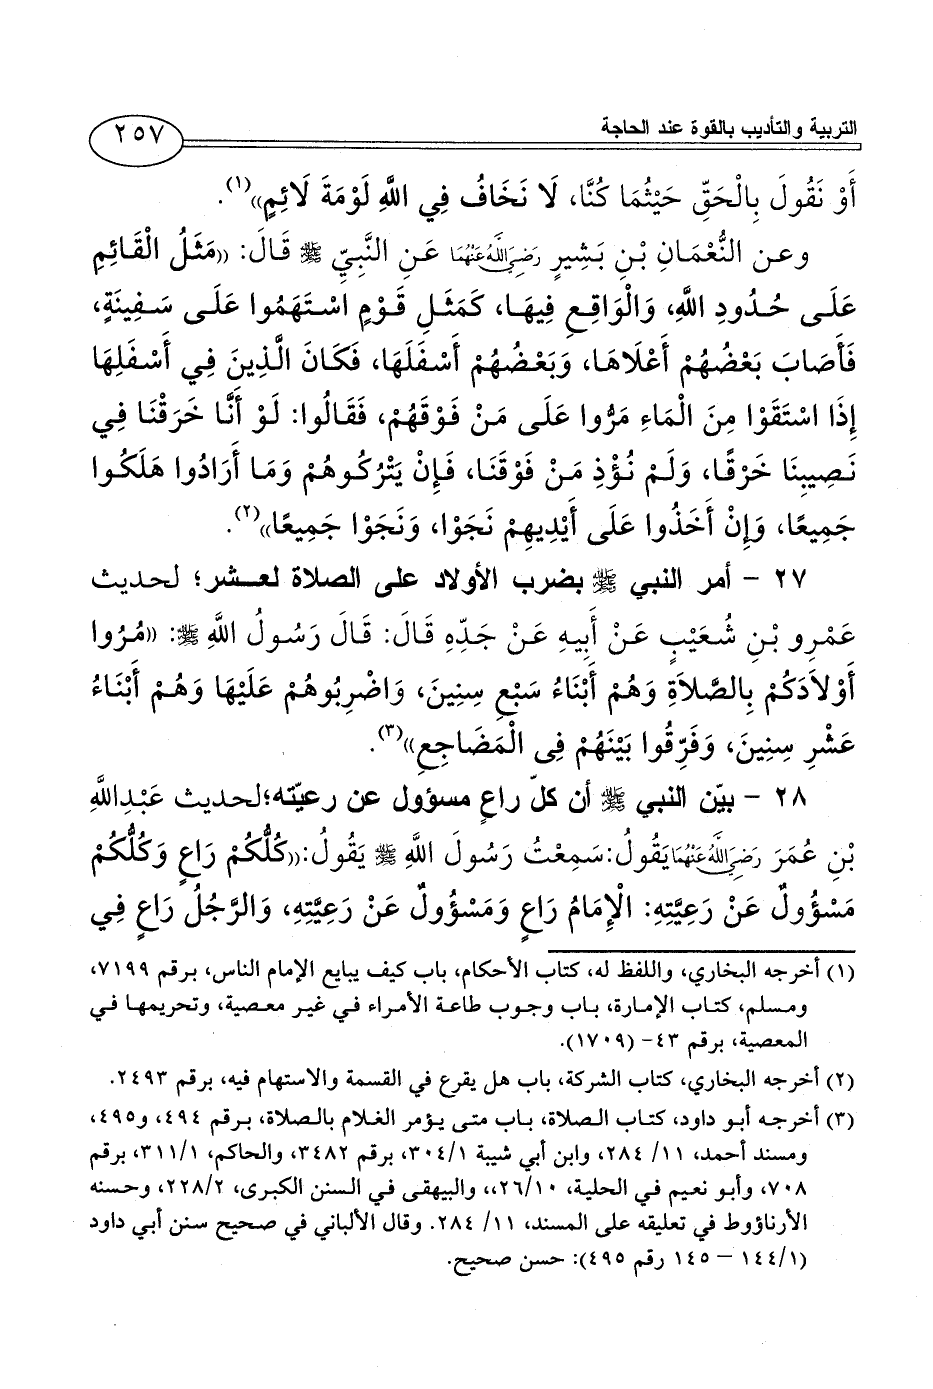 التربية والتأديب بالقوة عند الحاجة
٢٥٧
أَوْ نَقُولَ بِالْحَقِّ حَيْثُمَا كُنَّا، لَا نَخَافُ فِي اللَّهِ لَوْمَةَ لَائِمٍ»(١).
وعن النُّعْمَانِ بْنِ بَشِيرٍ رَضِيَ اللَّهُ عَنْهُمَا عَنِ النَّبِيِّ ﷺ قَالَ: «مَثَلُ الْقَائِمِ
عَلَى حُدُودِ اللَّهِ، وَالْوَاقِعِ فِيهَا، كَمَثَلِ قَوْمٍ اسْتَهَمُوا عَلَى سَفِينَةٍ،
فَأَصَابَ بَعْضُهُمْ أَعْلَاهَا، وَبَعْضُهُمْ أَسْفَلَهَا، فَكَانَ الَّذِينَ فِي أَسْفَلِهَا
إِذَا اسْتَقَوْا مِنَ الْمَاءِ مَرُّوا عَلَى مَنْ فَوْقَهُمْ، فَقَالُوا: لَوْ أَنَّا خَرَقْنَا فِي
نَصِيبِنَا خَرْقًا، وَلَمْ نُؤْذِ مَنْ فَوْقَنَا، فَإِنْ يَتْرُكُوهُمْ وَمَا أَرَادُوا هَلَكُوا
جَمِيعًا، وَإِنْ أَخَذُوا عَلَى أَيْدِيهِمْ نَجَوْا، وَنَجَوْا جَمِيعًا»(٢).
٢٧ – أمر النبي ﷺ بضرب الأولاد على الصلاة لعشر؛ لحديث
عَمْرِو بْنِ شُعَيْبٍ عَنْ أَبِيهِ عَنْ جَدِّهِ قَالَ: قَالَ رَسُولُ اللَّهِ ﷺ: «مُرُوا
أَوْلاَدَكُمْ بِالصَّلاَةِ وَهُمْ أَبْنَاءُ سَبْعِ سِنِينَ، وَاضْرِبُوهُمْ عَلَيْهَا وَهُمْ أَبْنَاءُ
عَشْرِ سِنِينَ، وَفَرِّقُوا بَيْنَهُمْ فِى الْمَضَاجِعِ»(٣).
٢٨ – بيّن النبي ﷺ أن كلّ راعٍ مسؤول عن رعيّته؛لحديث عَبْدِاللَّهِ
بْنِ عُمَرَ رَضِيَ اللَّهُ عَنْهُمَا يَقُولُ:سَمِعْتُ رَسُولَ اللَّهِ ﷺ يَقُولُ:«كُلُّكُمْ رَاعٍ وَكُلُّكُمْ
مَسْؤُولٌ عَنْ رَعِيَّتِهِ: الْإِمَامُ رَاعٍ وَمَسْؤُولٌ عَنْ رَعِيَّتِهِ، وَالرَّجُلُ رَاعٍ فِي
(١) أخرجه البخاري، واللفظ له، كتاب الأحكام، باب كيف يبايع الإمام الناس، برقم ٧١٩٩،
ومسلم، كتاب الإمارة، باب وجوب طاعة الأمراء في غير معصية، وتحريمها في
المعصية، برقم ٤٣- (١٧٠٩).
(٢) أخرجه البخاري، كتاب الشركة، باب هل يقرع في القسمة والاستهام فيه، برقم ٢٤٩٣.
(٣) أخرجه أبو داود، كتاب الصلاة، باب متى يؤمر الغلام بالصلاة، برقم ٤٩٤، و٤٩٥،
ومسند أحمد، ١١/ ٢٨٤، وابن أبي شيبة ٣٠٤/١، برقم ٣٤٨٢، والحاكم، ٣١١/١، برقم
٧٠٨، وأبو نعيم في الحلية، ٢٦/١٠،، والبيهقى في السنن الكبرى، ٢٢٨/٢، وحسنه
الأرناؤوط في تعليقه على المسند، ١١/ ٢٨٤. وقال الألباني في صحيح سنن أبي داود
(١٤٤/١ – ١٤٥ رقم ٤٩٥): حسن صحيح.